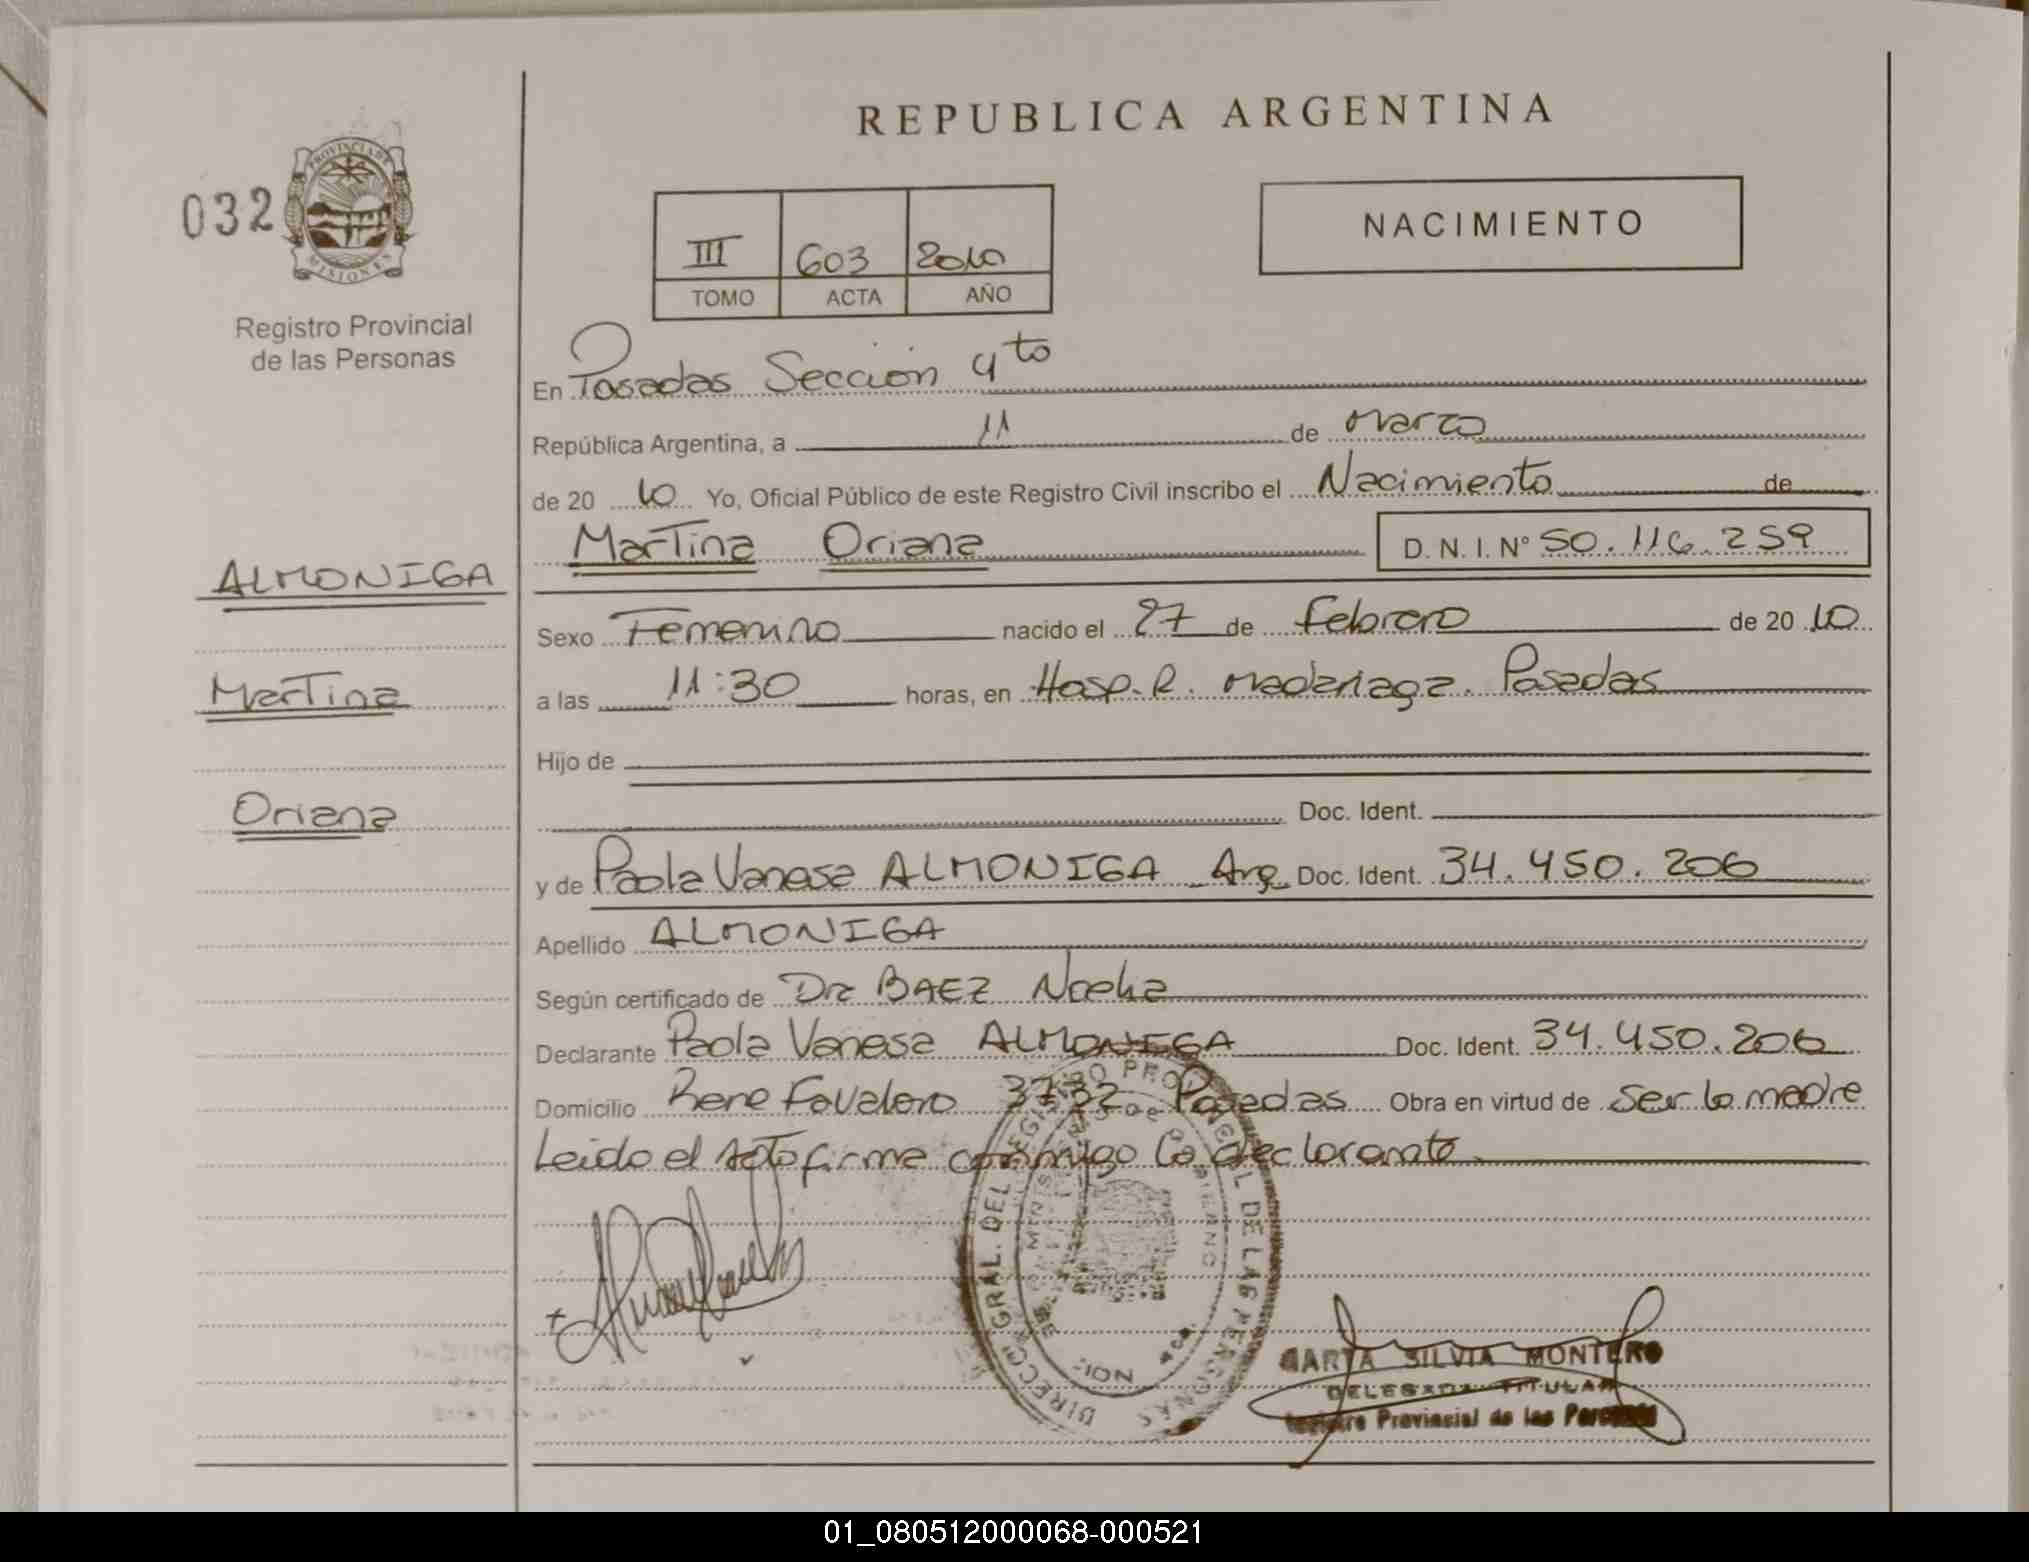 REPUBLICA ARGENTINA
032
PROVINCIA DE
MISIONES
Registro Provincial
de las Personas
III 603 2010
TOMO ACTA AÑO
NACIMIENTO
En Posadas Sección 4to
República Argentina, a 11 de Marzo
de 20 10 Yo, Oficial Público de este Registro Civil inscribo el Nacimiento de
Martina Oriana D. N. I. Nº 50.116.259
ALMONIGA
Martina
Oriana
Sexo Femenino nacido el 27 de Febrero de 20 10
a las 11:30 horas, en Hosp. R. Madariaga. Posadas
Hijo de
Doc. Ident.
y de Paola Vanesa ALMONIGA Arg. Doc. Ident. 34.450.206
Apellido ALMONIGA
Según certificado de Dra BAEZ Noelia
Declarante Paola Vanesa ALMONIGA Doc. Ident. 34.450.206
Domicilio Rene Favaloro 3732 Posadas Obra en virtud de ser la madre
Leido el acto firma conmigo la declarante.
DIRECCION GRAL. DEL REGISTRO PROVINCIAL DE LAS PERSONAS
MARTA SILVIA MONTERO
DELEGADA TITULAR
Registro Provincial de las Personas
01_080512000068-000521